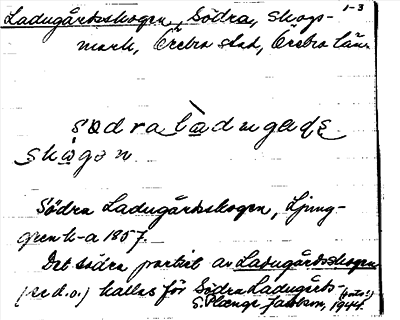 1-3
Ladugårdsskogen, Södra, skogs-
mark, Örebro stad, Örebro län
södra ladugads
skogen
Södra Ladugårdsskogen, Ljung-
gren k-a 1857.
Det södra partiet av Ladugårdsskogen
(se d.o.) kallas för Södra Ladugårds-
S. 1944.